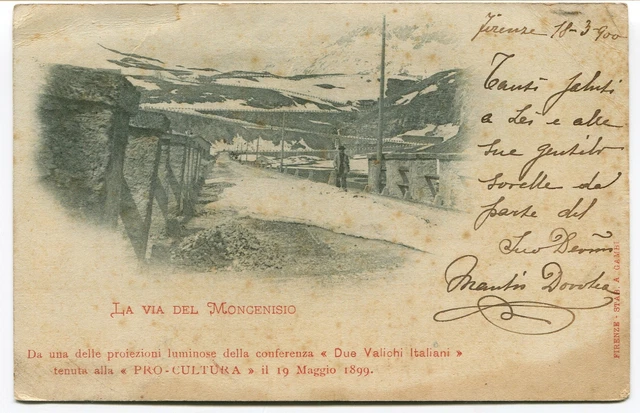 Firenze 18-3-900
Tanti saluti
a Lei e alle
sue gentili
sorelle da
parte del
Suo
LA VIA DEL MONCENISIO
Da una delle proiezioni luminose della conferenza « Due Valichi Italiani »
tenuta alla « PRO-CULTURA » il 19 Maggio 1899.
FIRENZE - STAB. A.